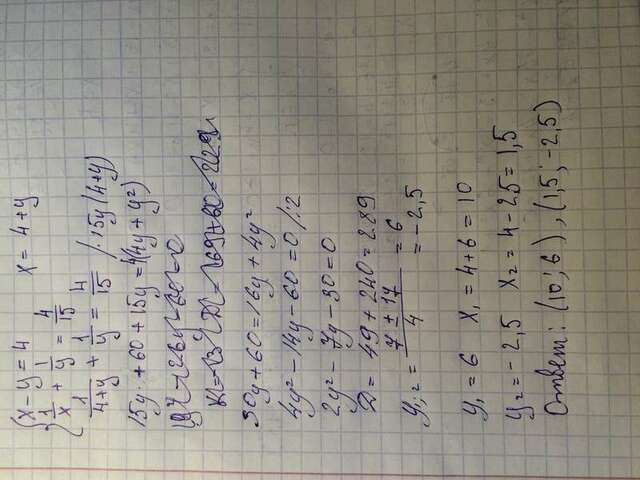 x - y = 4 x = 4 + y
1/x + 1/y = 4/15
1/(4+y) + 1/y = 4/15 / · 15y (4+y)
15y + 60 + 15y = 4(4y + y²)
30y + 60 = 16y + 4y²
4y² - 14y - 60 = 0 /:2
2y² - 7y - 30 = 0
D = 49 + 240 = 289
y₁;₂ = (7 ± 17)/4 = 6
= -2,5
y₁ = 6 x₁ = 4+6 = 10
y₂ = -2,5 x₂ = 4 - 2,5 = 1,5
Ответ: (10; 6), (1,5; -2,5)